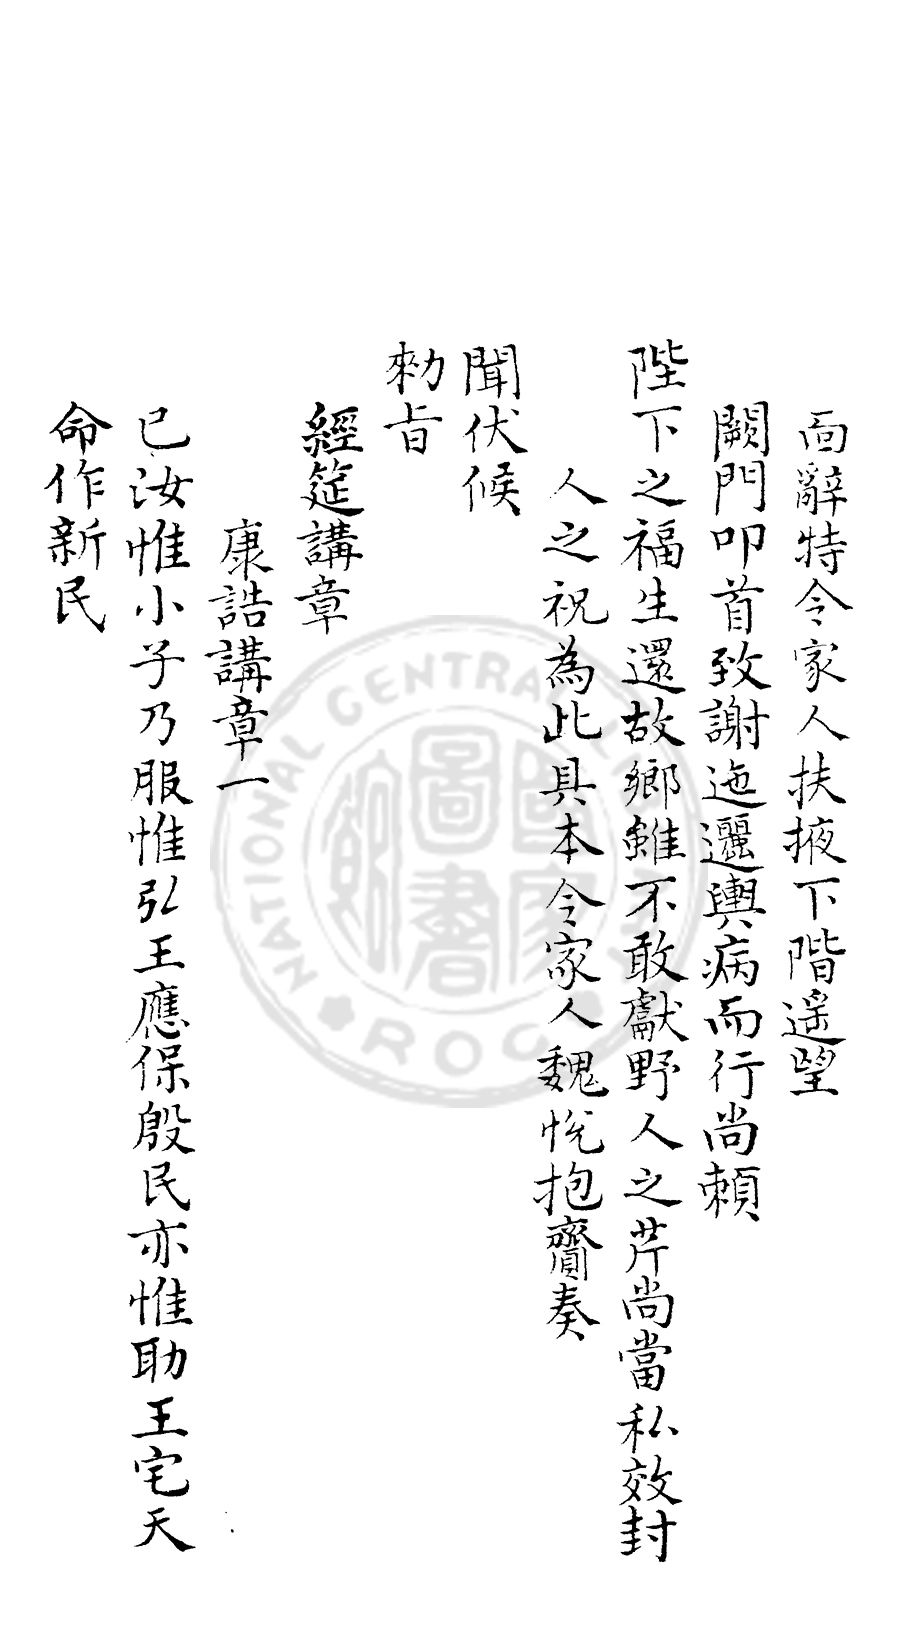 面辭特令家人扶掖下階遥望
闕門叩首致謝迤邐輿病而行尚賴
陛下之福生還故鄉雖不敢獻野人之芹尚當私效封
人之祝為此具本令家人魏恱抱齎奏
聞伏候
勑旨
經筵講章
康誥講章一
已汝惟小子乃服惟弘王應保殷民亦惟助王宅天
命作新民
NATIONAL CENTRAL
ROC
國家圖書館